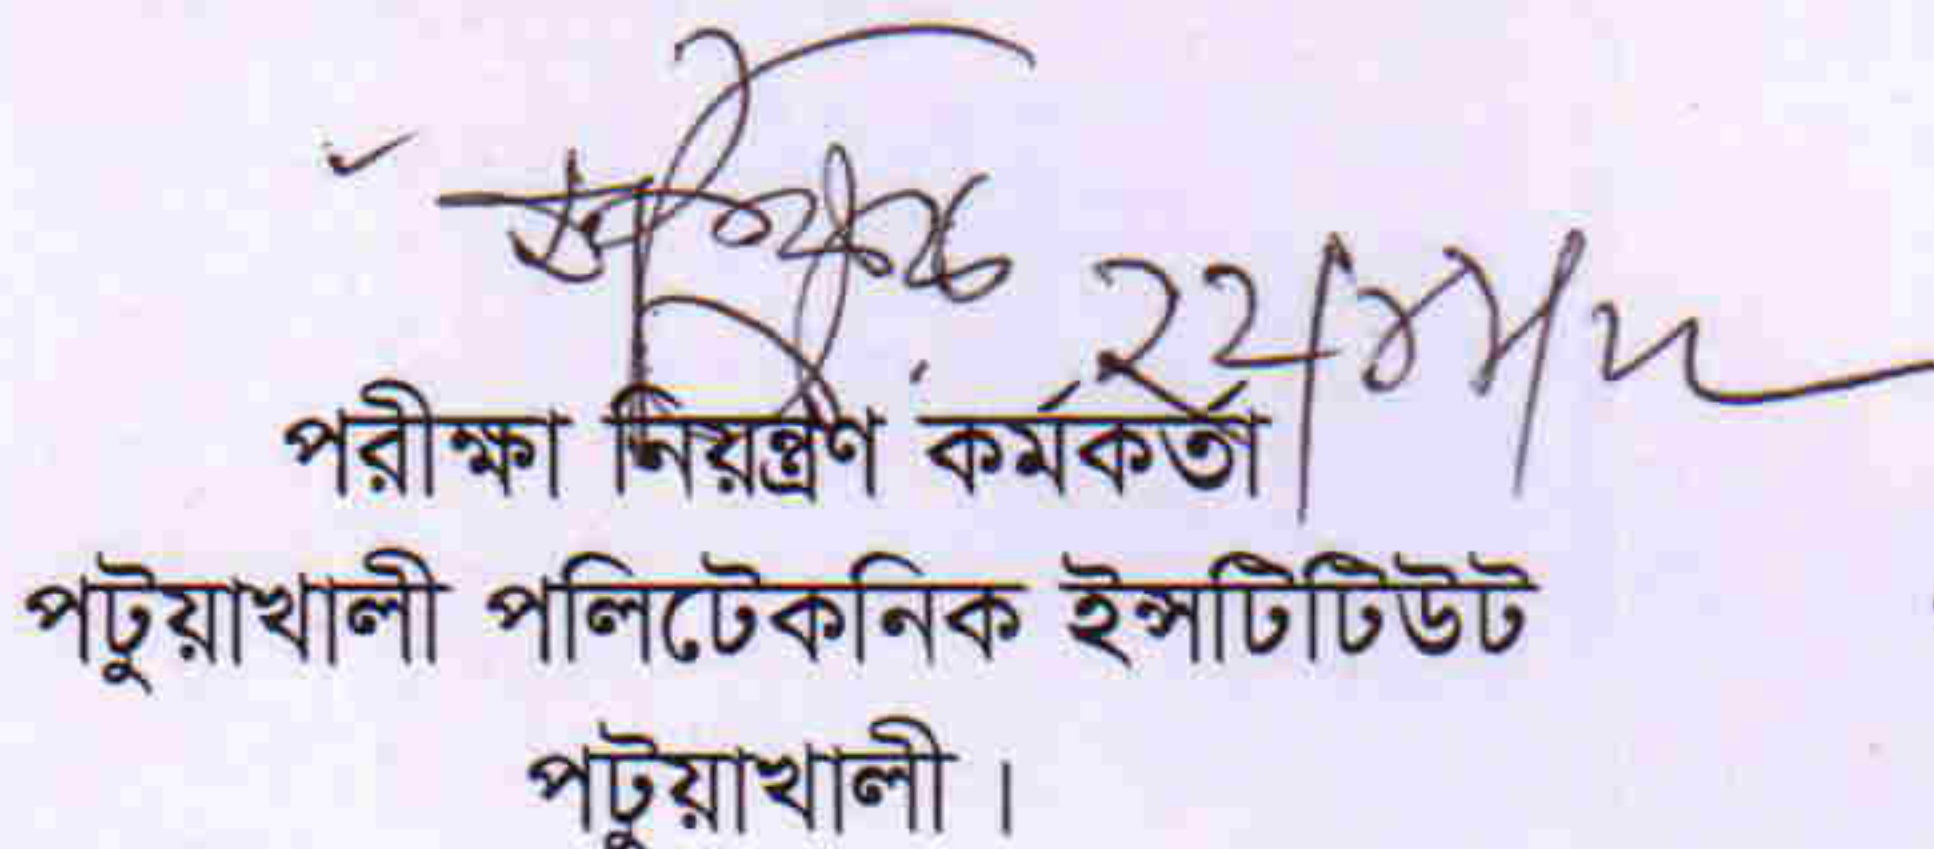 পরীক্ষা নিয়ন্ত্রণ কর্মকর্তা
পটুয়াখালী পলিটেকনিক ইন্সটিটিউট
পটুয়াখালী।